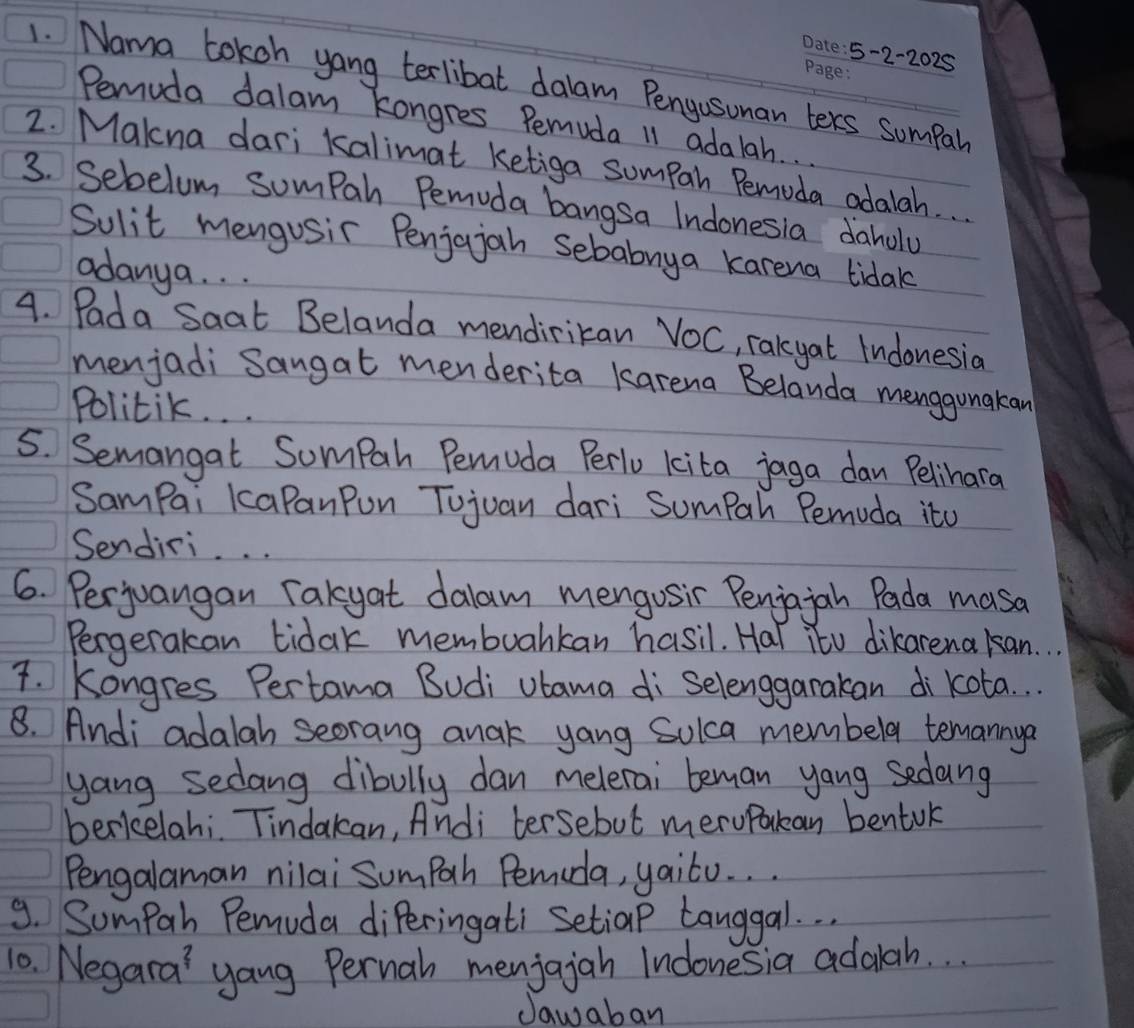 Date: 5-2-2025
Page:
1. Nama tokoh yang terlibat dalam Penyusunan teks Sumpah
Pemuda dalam kongres Pemuda 11 adalah...
2. Makna dari kalimat ketiga Sumpah Pemuda adalah...
3. Sebelum Sumpah Pemuda bangsa Indonesia dahulu
Sulit mengusir Penjajah Sebabnya karena tidak
adanya...
4. Pada Saat Belanda mendirikan VOC, rakyat Indonesia
menjadi Sangat menderita karena Belanda menggunakan
Politik...
5. Semangat Sumpah Pemuda Perlu kita jaga dan Pelihara
Sampai kapanpun Tujuan dari Sumpah Pemuda itu
Sendiri...
6. Perjuangan rakyat dalam mengusir Penjajah Pada masa
Pergerakan tidak membuahkan hasil. Hal itu dikarenakan...
7. Kongres Pertama Budi Utama di Selenggarakan di kota...
8. Andi adalah seorang anak yang Suka membela temannya
yang sedang dibully dan melerai teman yang sedang
berkelahi. Tindakan, Andi tersebut merupakan bentuk
Pengalaman nilai Sumpah Pemuda, yaitu...
9. Sumpah Pemuda diperingati setiap tanggal...
10. Negara² yang Pernah menjajah Indonesia adalah...
Jawaban